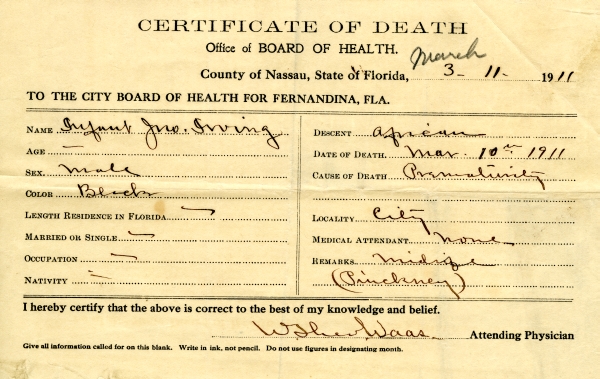 CERTIFICATE OF DEATH
Office of BOARD OF HEALTH.
March
County of Nassau, State of Florida, 3 - 11 - 1911
TO THE CITY BOARD OF HEALTH FOR FERNANDINA, FLA.
NAME Infant Jno. Irving
AGE —
SEX Male
COLOR Black
LENGTH RESIDENCE IN FLORIDA —
MARRIED OR SINGLE —
OCCUPATION —
NATIVITY —
DESCENT African
DATE OF DEATH Mar. 10th 1911
CAUSE OF DEATH Prematurity
LOCALITY City
MEDICAL ATTENDANT none
REMARKS
(Pinckney)
I hereby certify that the above is correct to the best of my knowledge and belief.
Waas Attending Physician
Give all information called for on this blank. Write in ink, not pencil. Do not use figures in designating month.